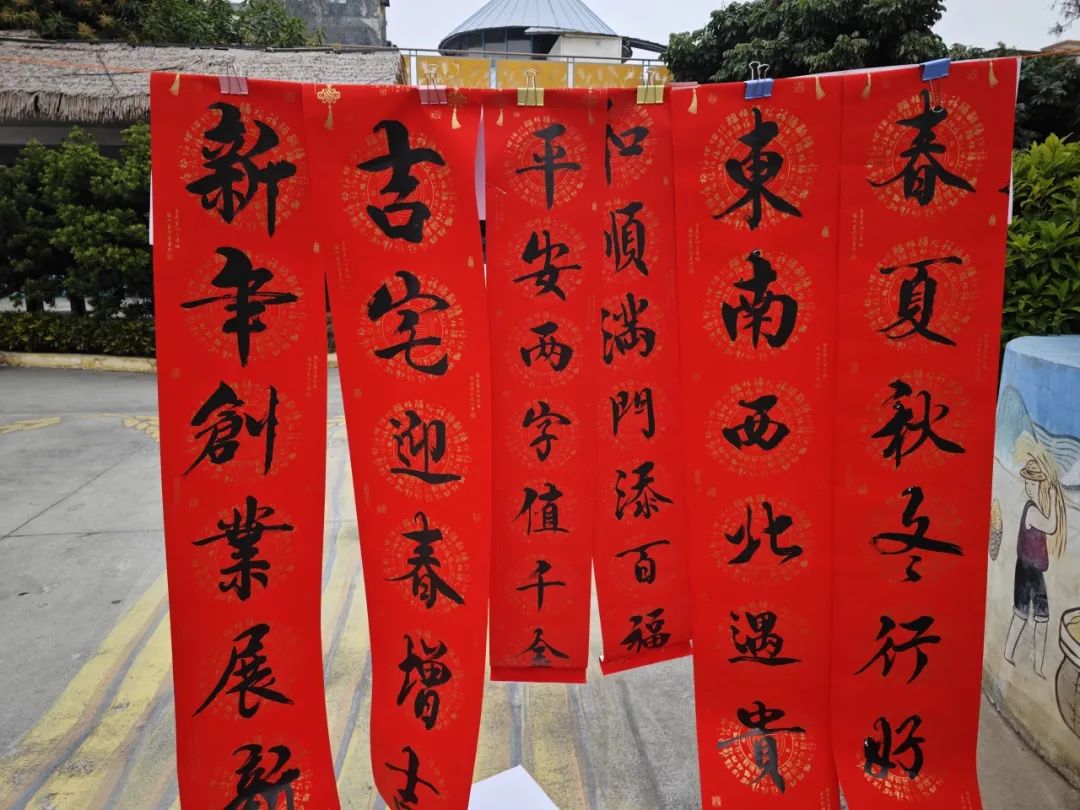 春夏秋冬行好
東南西北遇貴
和順满門添百福
平安两字值千金
吉宅迎春增
新年創業展新